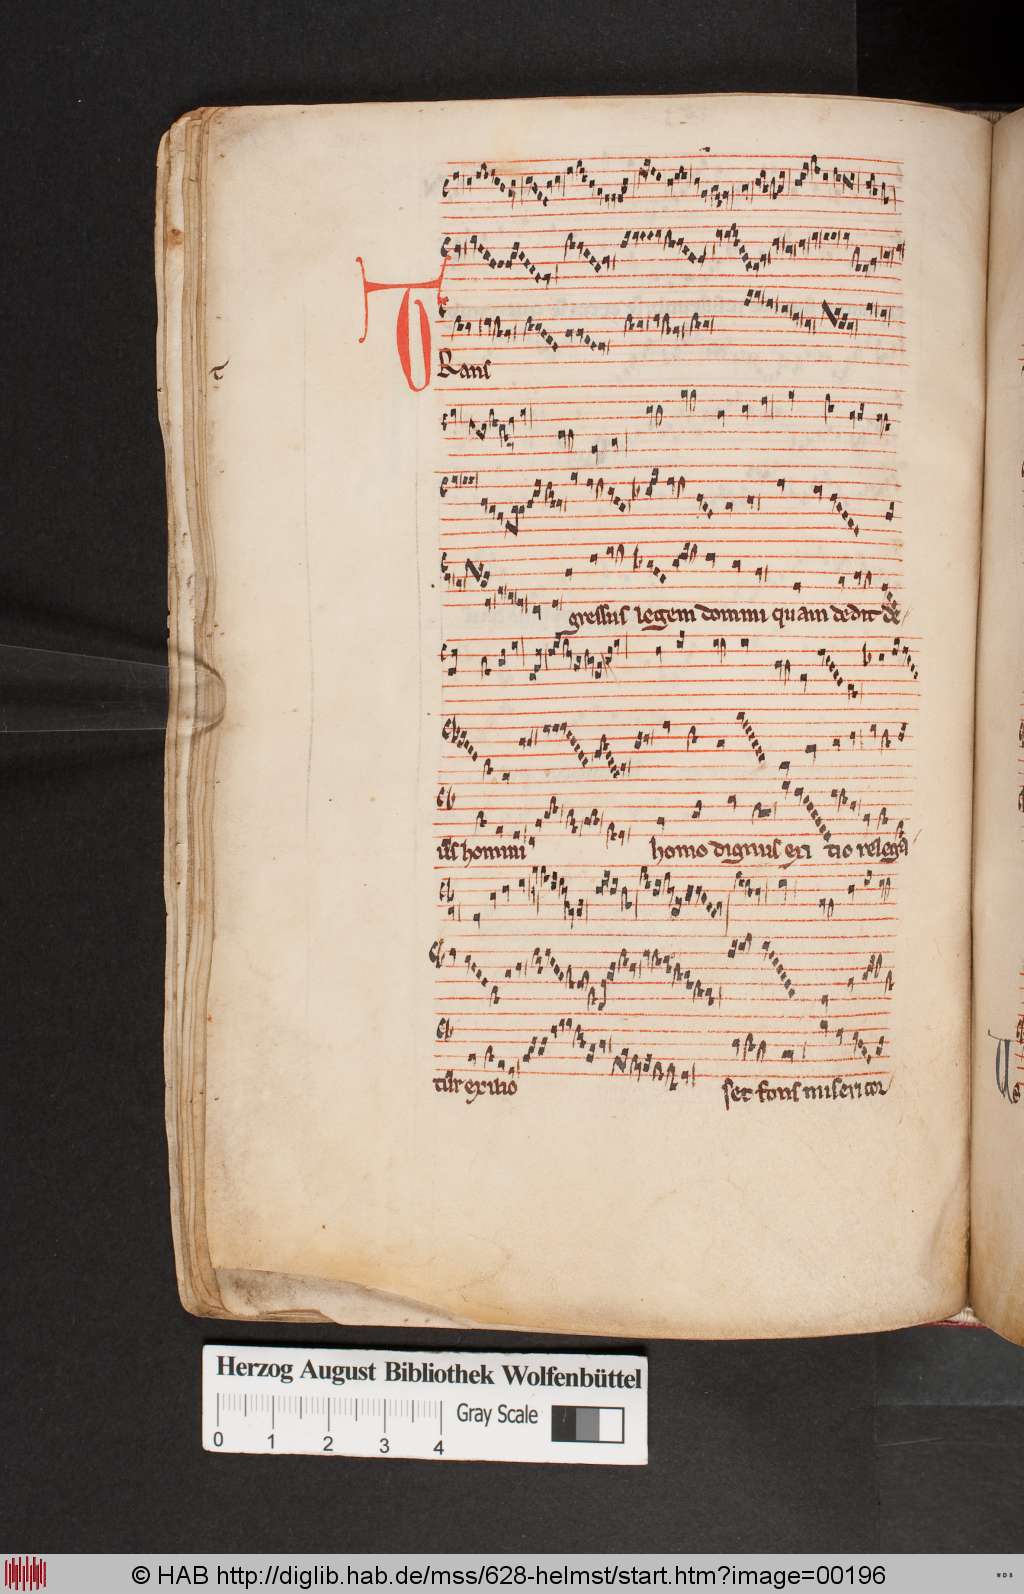 T
Rans
gressus legem domini quam dedit de
us homini homo dignus exi tio relega
tur exilio set fons misericor
Herzog August Bibliothek Wolfenbüttel
Gray Scale
0 1 2 3 4
© HAB http://diglib.hab.de/mss/628-helmst/start.htm?image=00196